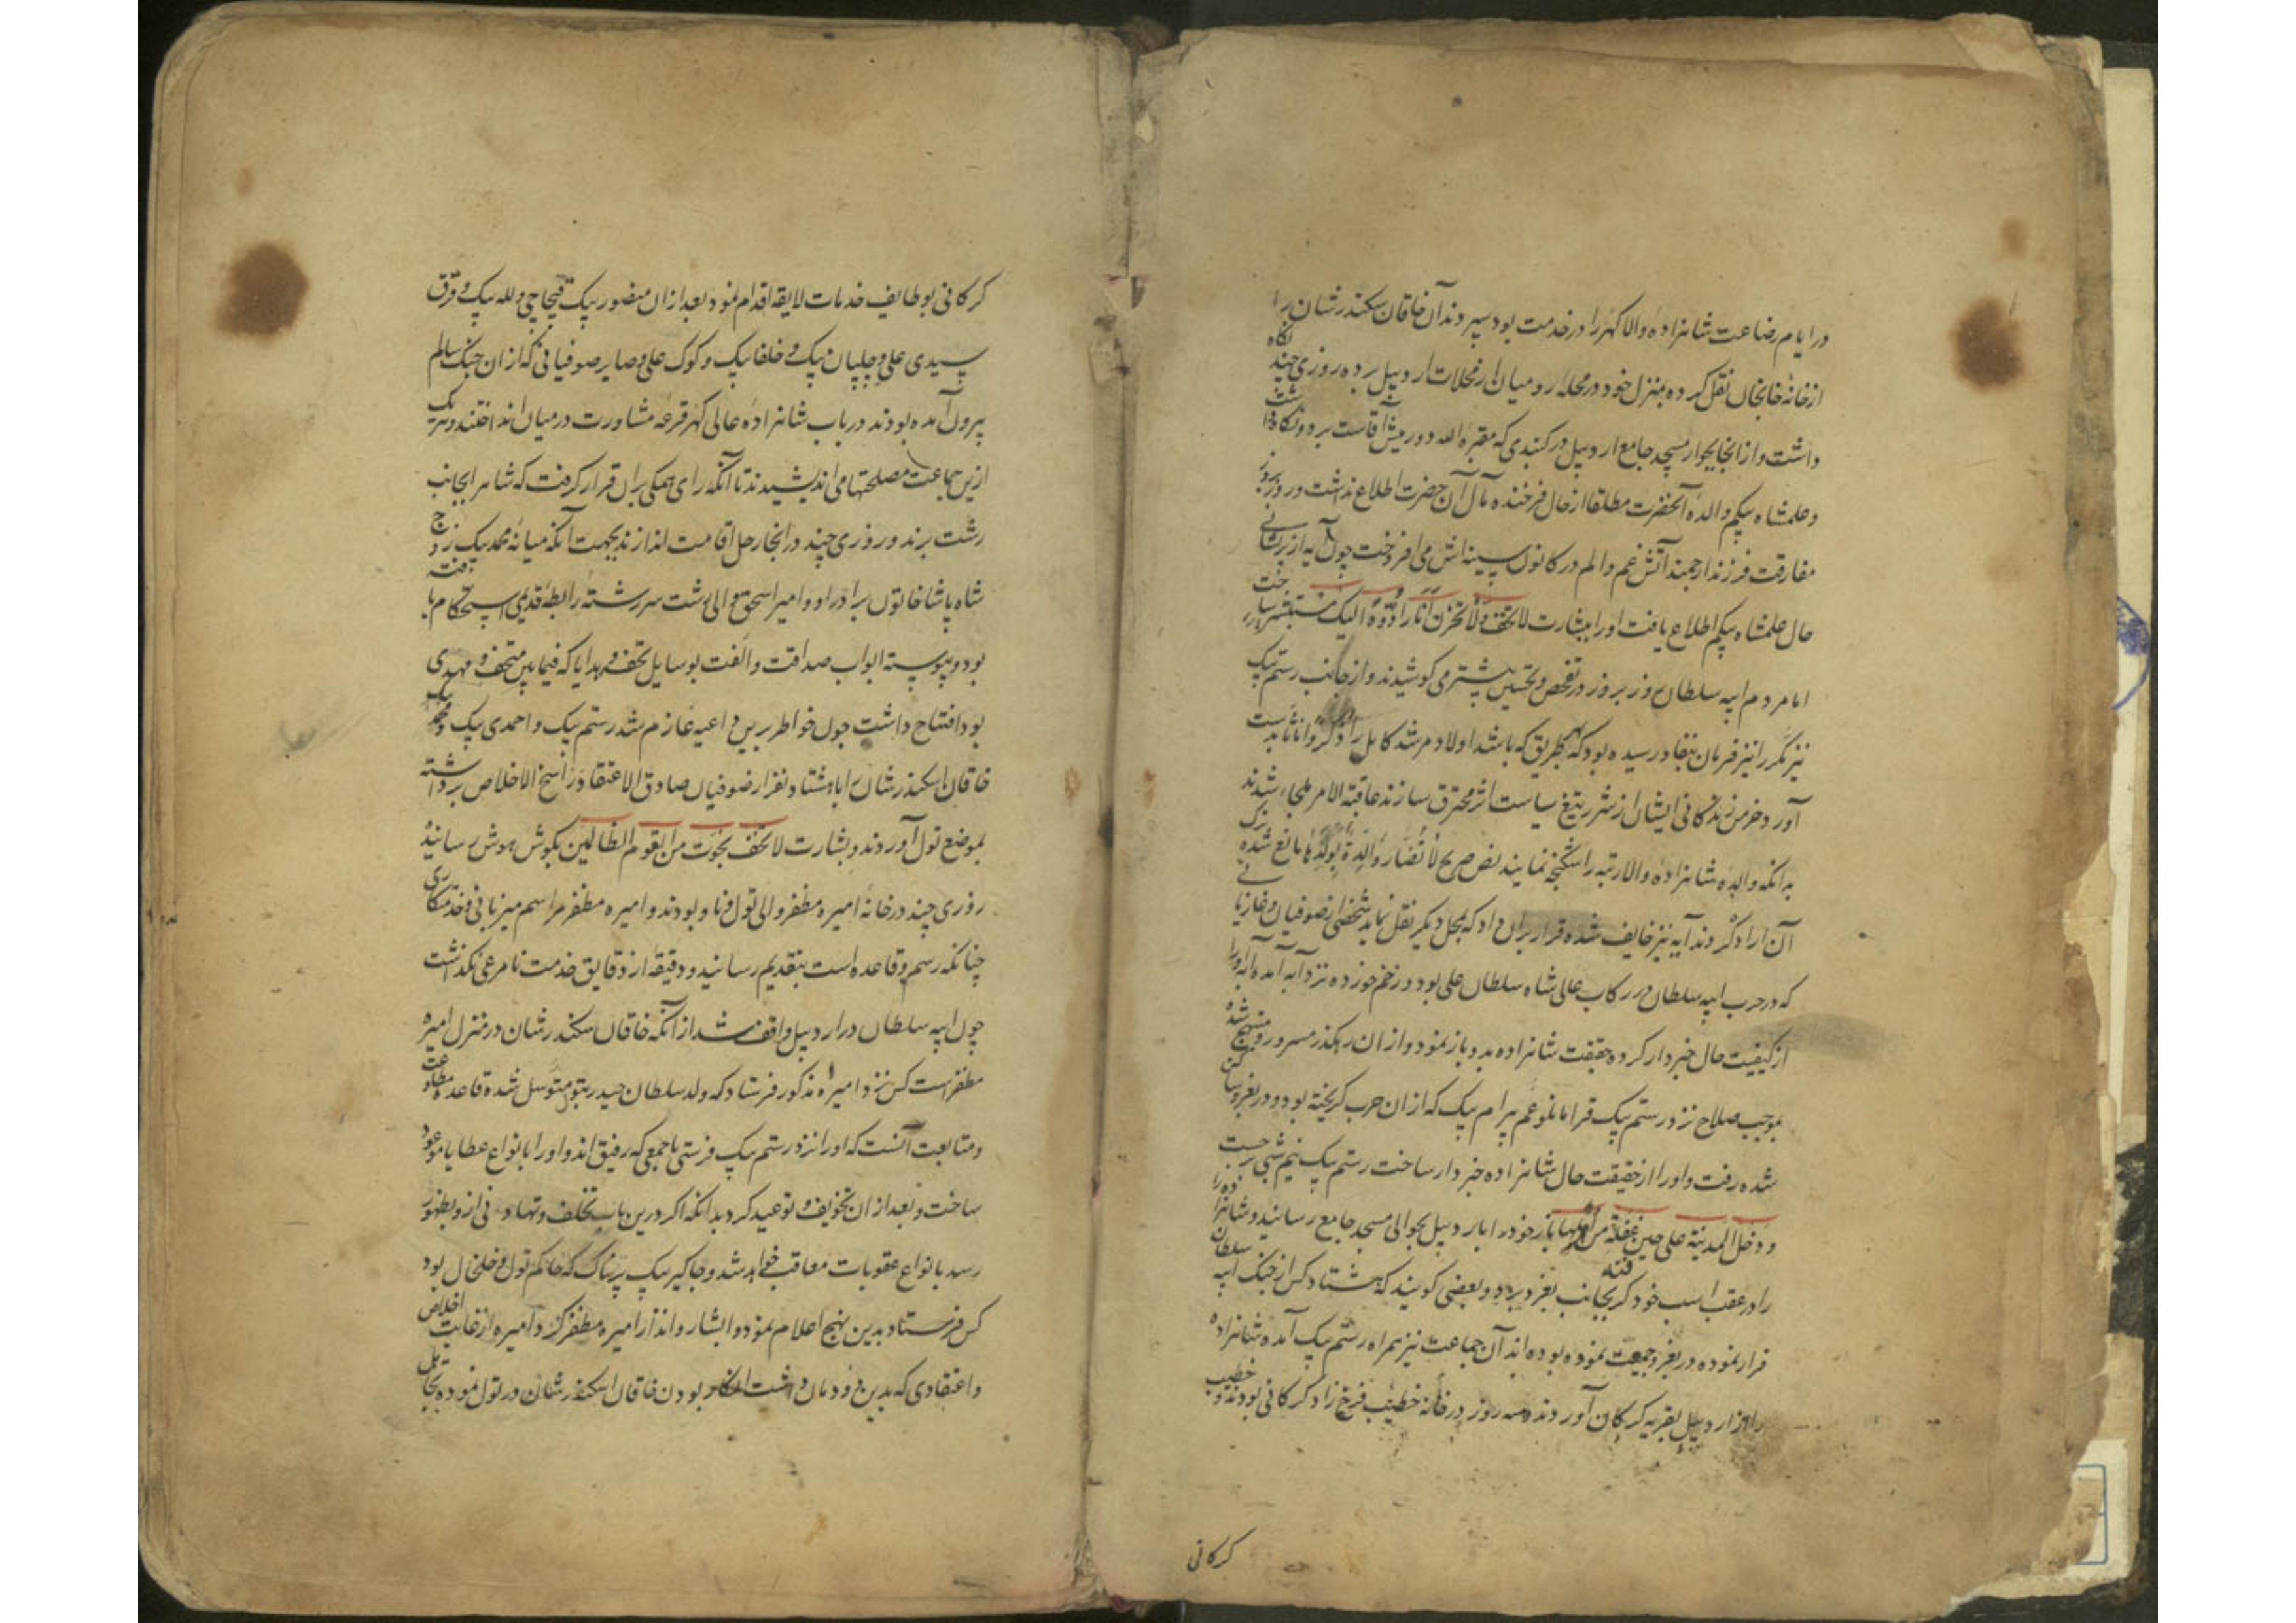 در ایام رضاعت شاهزاده والا گهر را در خدمت بود سپردند آن خاقان سکندر شان را
از خانه خانجان نقل کرده بمنزل خود در محله رومیان از محلات اردبیل برده روزی چند نگاه
داشت و از انجا بجوار مسجد جامع اردبیل در کنبدی که مقبره الله دور میش آقاست برد و نگاه داشت
و علمشاه بیکم والده آنحضرت مطلقا از حال فرخنده مآل آن حضرت اطلاع نداشت و روز بروز
مفارقت فرزند ارجمند آتش غم و الم در کانون سینه اش می افروخت چون آیه از پریشانی
حال علمشاه بیکم اطلاع یافت او را ببشارت لا تخف و لا تحزن انا رادوه الیک مستبشر ساخت
اما مردم ایبه سلطان روز بروز در تفحص و تجسس بیشتر می کوشیدند و از جانب رستم بیک
نیز مکرر انیز فرمان بنفاذ رسیده بود که بهر طریق که باشد اولاد مرشد کامل را بدست
آورد خرمن زندکانی ایشان از شرر تیغ سیاست اثر محترق سازند عاقبة الامر ملجاء شدند
بدانکه والده شاهزاده والارتبه را شکنجه نمایند نص صریح لا تضار والدة بولدها مانع شده ترک
آن ارادکردند آیه نیز خایف شده قرار بران داد که بمحل دیکر نقل نماید شخصی از صوفیان و غازیانی
که در حرب ایبه سلطان در رکاب عالی شاه سلطان علی بود و زخم خورده نزد آیه آمده آیه او را
از کیفیت حال خبردار کرده حقیقت شاهزاده بدو باز نمود و از ان رهکذر مسرور و مبتهج شده
بموجب صلاح نزد رستم بیک قرامانلو عم بیرام بیک که از ان حرب کریخته بود و در بغرو ساکن
شده رفت و او را از حقیقت حال شاهزاده خبردار ساخت رستم بیک نیم شبی
و دخل المدینة علی حین غفلة من اهلها باز خود را باردبیل بحوالی مسجد جامع رسانید و شاهزاده را
را در عقب اسب خود کرفته بجانب بغرو برد و بعضی کویند که هشتاد کس از جنک ایبه سلطان
فرار نموده در بغرو جمعیت نموده بوده اند آن جماعت نیز همراه رستم بیک آمده شاهزاده
را از اردبیل بقریه کرکان آوردند و سه روز در خانه خطیب فرخ زاد کرکانی بودند و خطیب
کرکانی
کرکانی بوظایف خدمات لایقه اقدام نمود بعد از ان منصور بیک قبچاچی و لله بیک و قرق
سیدی علی و چلپان بیک و خلفا بیک و کوک علی و صایر صوفیانی که از ان جنک سالم
بیرون آمده بودند در باب شاهزاده عالی کهر قرعه مشاورت در میان انداختند و هریک
ازین جماعت مصلحتها می اندیشیدند تا آنکه رای همکی بران قرار کرفت که شاه را بجانب
رشت برند و روزی چند در انجا رحل اقامت اندازند بجهت آنکه میانه محمد بیک زوج
شاه پاشا خاتون برادر او و امیر اسحق والی رشت سررشته رابطه قدیمی استحکام یافته
بود و پیوسته ابواب صداقت و الفت بوسایل تحف و هدایا که فیما بین متحف و مهدی
بود افتتاح داشت چون خواطر برین داعیه عازم شد رستم بیک و احمدی بیک و محمد بیک
خاقان اسکندر شان را با هشتاد نفر از صوفیان صادق الاعتقاد راسخ الاخلاص برداشته
بموضع تول آوردند و بشارت لا تخف نجوت من القوم الظالمین بکوش هوش رسانید
روزی چند در خانه امیره مظفر والی تول و ناو بودند و امیره مظفر مراسم میزبانی و خدمتکاری
چنانکه رسم و قاعده است بتقدیم رسانید و دقیقه از دقایق خدمت نامرعی نکذاشت
چون ایبه سلطان در اردبیل واقف شد از آنکه خاقان سکندر شان در منزل امیره
مظفر است کس نزد امیره مذکور فرستاد که ولد سلطان حیدر بتو متوسل شده قاعده مطاوعت
و متابعت آنست که او را نزد رستم بیک فرستی با جمعی که رفیق اند و او را بانواع عطایا موعود
ساخت و بعد از ان تخویف و توعید کرد بدانکه اکر درین باب تخلف و تهاونی ازو بظهور
رسد بانواع عقوبات معاقب خواهد شد و جاکیر بیک پرناک که حاکم تول و خلخال بود
کس فرستاد بدین نهج اعلام نمود و ابشار و انذار امیره مظفر کرد و امیره از غایت اخلاص
و اعتقادی که بدین دودمان داشت انکار بودن خاقان اسکندر شان در تول نموده